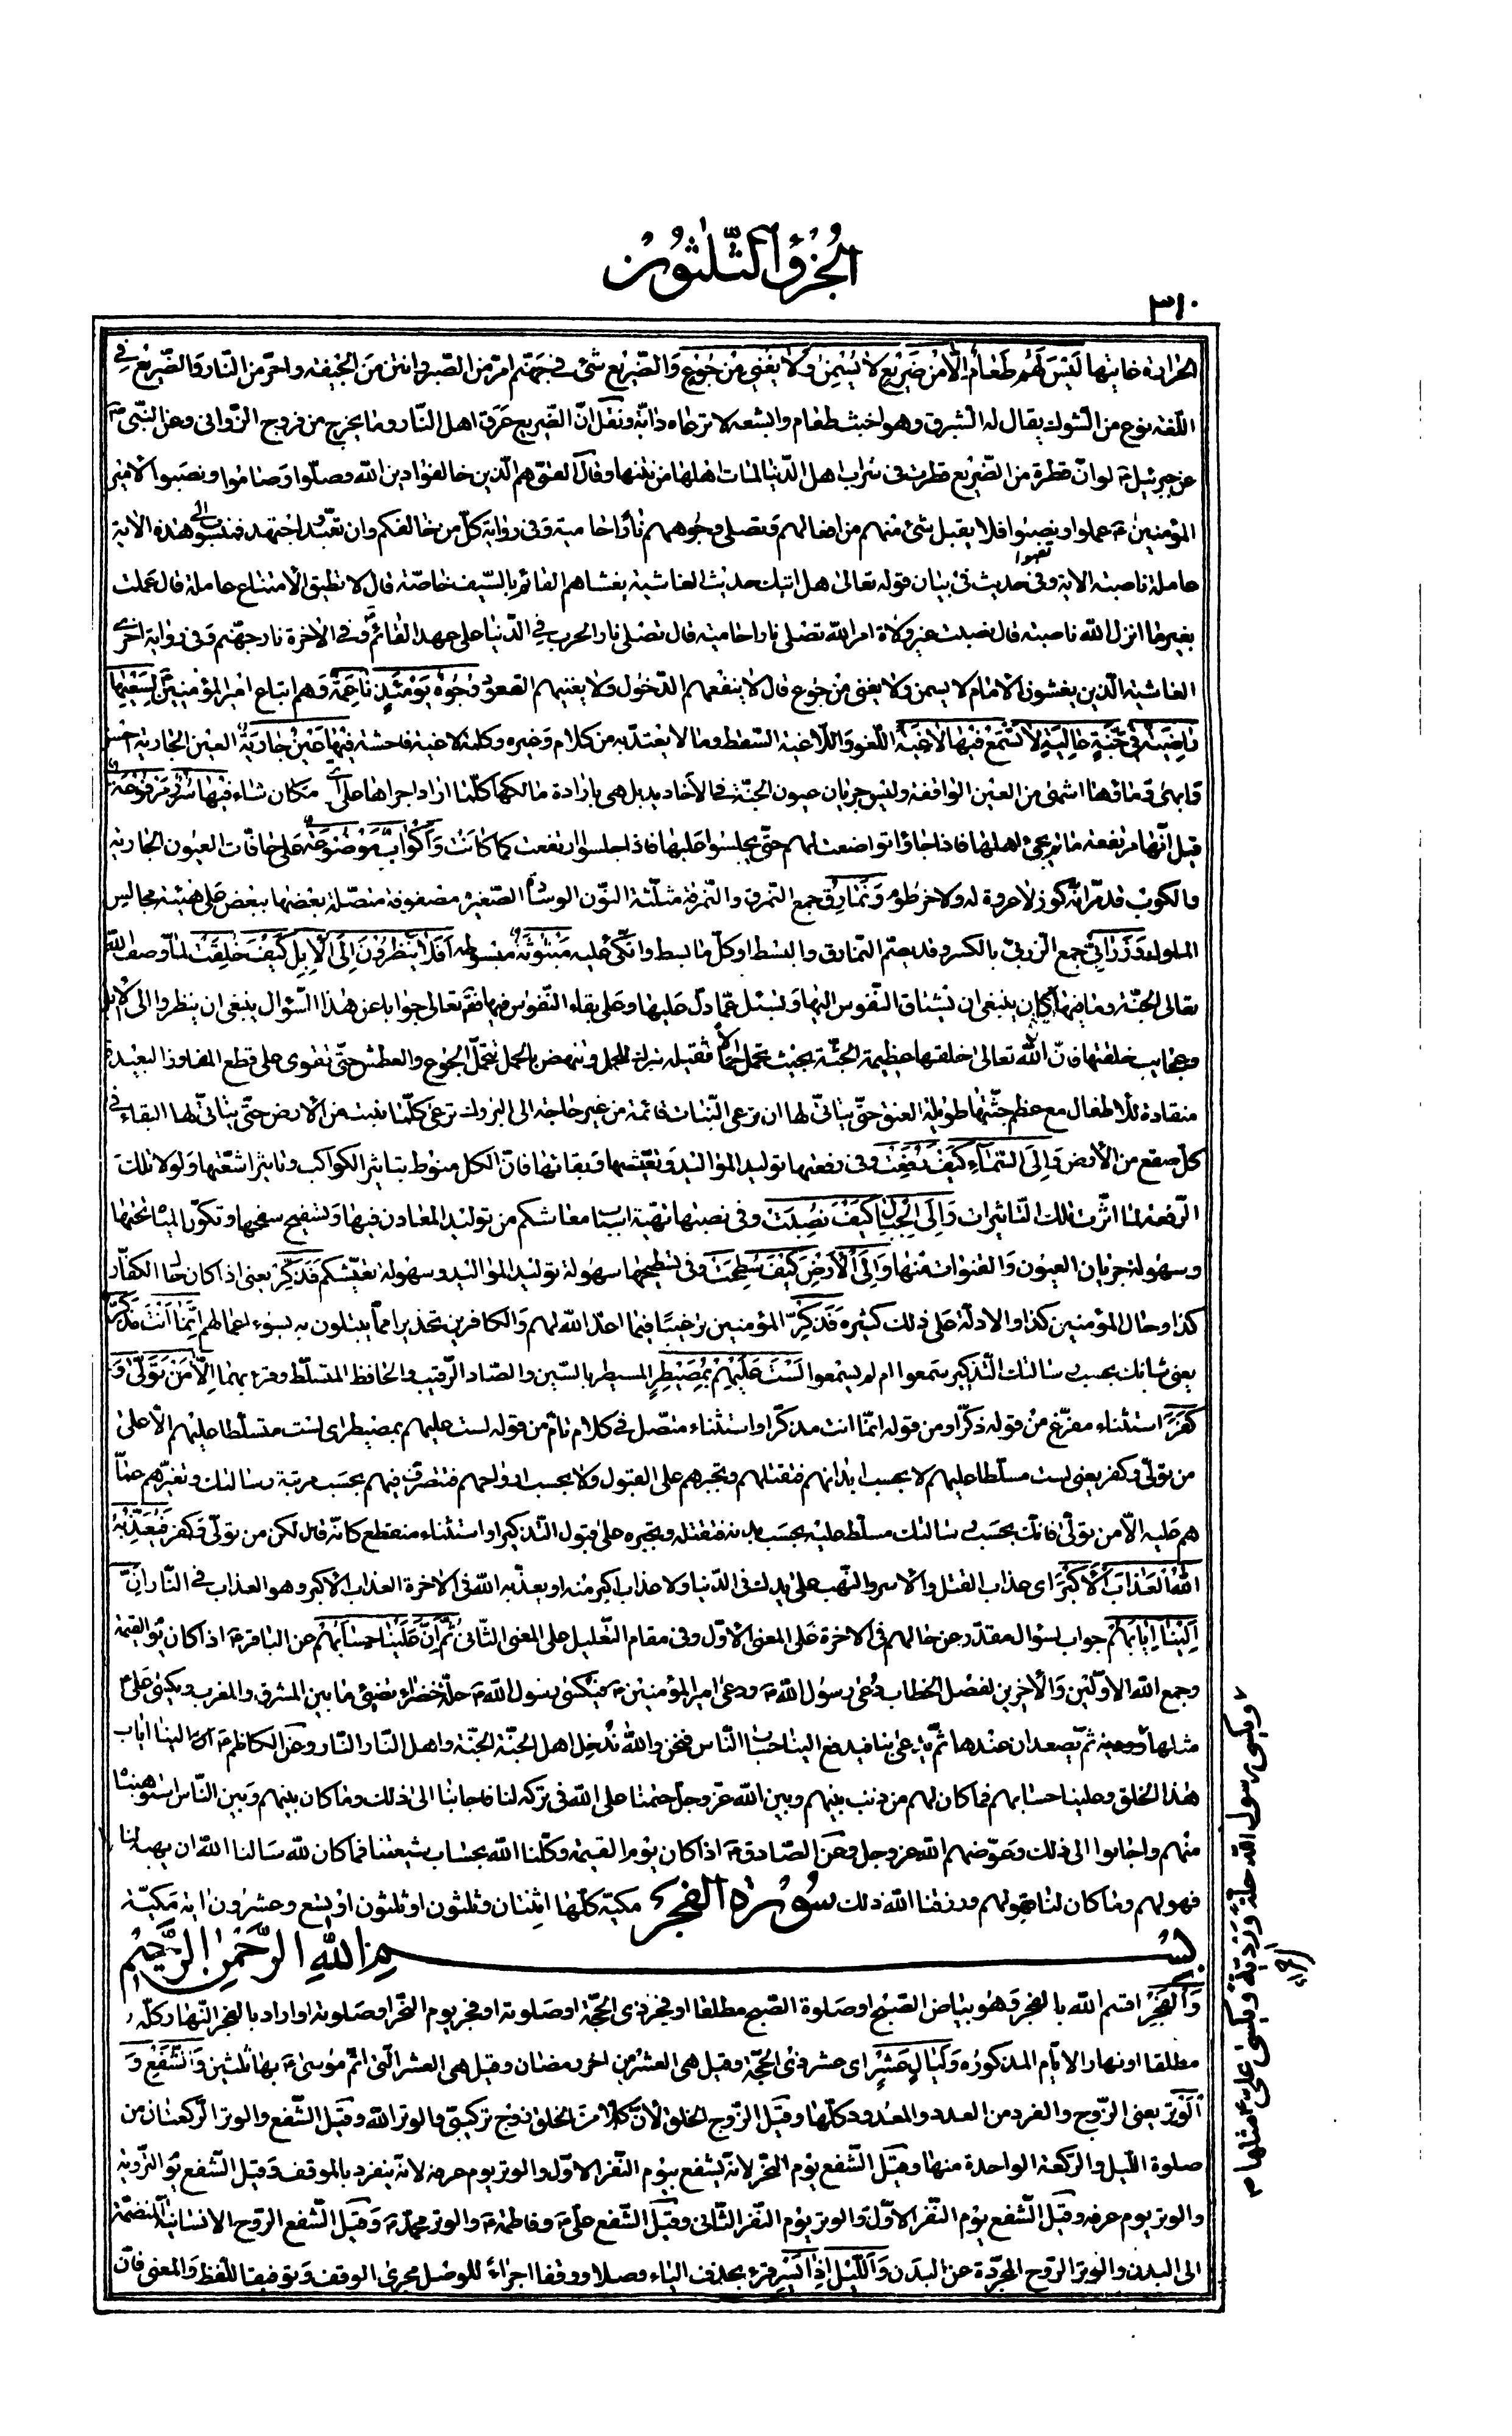 الجزؤ الثلثون
٣١٠
الحرارة غايتها لَيْسَ لَهُمْ طَعَامٌ إِلَّا مِنْ ضَرِيعٍ لَا يُسْمِنُ وَلَا يُغْنِي مِنْ جُوعٍ وَالضّريع شئ فى جهنّم امرّ من الصّبر وانتن من الجيفة واحرّ من النّار والضّريع فى
اللّغة نوع من الشّوك يقال له الشّبرق وهو اخبث طعام وابشعه لا ترعاه دابّة ونقل انّ الضّريع عرق اهل النّار وما يخرج من فروج الزّوانى وعن النّبىّ ص
عن جبرئيل ع لو انّ قطرة من الضّريع قطرت فى شراب اهل الدّنيا لمات اهلها من نتنها وقال القمّى هم الّذين خالفوا دين الله وصلّوا وصاموا ونصبوا لامير
المؤمنين ع عملوا ونصبوا فلا يقبل شئ منهم من افعالهم وتصلى وجوههم نارًا حامية وفى رواية كلّ من خالفكم وان تعبّد واجتهد فمنسوب الى هذه الاية
عاملة ناصبة الاية وفى حديث فى بيان قوله تعالى هل اتيك حديث الغاشية يغشاهم القائم بالسّيف خاصّة قال لا تطيق الامتناع عاملة قال عملت
بغير ما انزل الله ناصبة قال نصبت غير ولاة امر الله تصلى نارا حامية قال تصلى نار الحرب فى الدّنيا على عهد القائم ع وفى الاخرة نار جهنّم وفى رواية اخرى
الغاشية الّذين يغشون الامام لا يسمن ولا يغنى من جوع قال لا ينفعهم الدّخول ولا يغنيهم القعود وُجُوهٌ يَوْمَئِذٍ نَاعِمَةٌ وهم اتباع امير المؤمنين ع لِسَعْيِهَا
رَاضِيَةٌ فِي جَنَّةٍ عَالِيَةٍ لَا تَسْمَعُ فِيهَا لَاغِيَةً اللّغو واللّاغية السّقط وما لا يعتدّ به من كلام وغيره وكلمة لاغية فاحشة فِيهَا عَيْنٌ جَارِيَةٌ العين الجارية احسن
وابهى وماؤها اشهى من العين الواقفة وليس جريان عيون الجنّة فى الاخاديد بل هى بارادة مالكها كلّما اراد اجراها على اىّ مكان شاء فِيهَا سُرُرٌ مَرْفُوعَةٌ
قيل انّها مرتفعة ما لم يجئ اهلها فاذا جاؤا تواضعت لهم حتّى يجلسوا عليها فاذا جلسوا ارتفعت كما كانت وَأَكْوَابٌ مَوْضُوعَةٌ على حافّات العيون الجارية
والكوب قد مرّ انّه كوز لا عروة له ولا خرطوم وَنَمَارِقُ جمع النّمرق والنّمرقة مثلّثة النّون الوسادة الصّغيرة مَصْفُوفَةٌ متّصلة بعضها ببعض على هيئة مجالس
الملوك وَزَرَابِيُّ جمع الزّربىّ بالكسر وقد يضمّ النمارق والبسط او كلّ ما بسط واتّكئ عليه مَبْثُوثَةٌ مبسوطة أَفَلَا يَنْظُرُونَ إِلَى الْإِبِلِ كَيْفَ خُلِقَتْ لمّا وصف الله
تعالى الجنّة وما فيها كان ينبغى ان تشتاق النّفوس اليها وتسئل عمّا دلّ عليها وعلى بقاء النّفوس فيها فقال تعالى جوابا عن هذا السّؤال ينبغى ان ينظروا الى الابل
وعجايب خلقتها فانّ الله تعالى خلقها عظيمة الجثّة بحيث تحمل احمالا ثقيلة تبرك للحمل وتنهض بالحمل تحمّل الجوع والعطش حتّى تقوى على قطع المفاوز البعيدة
منقادة للاطفال مع عظم جثّتها طويلة العنق حتّى يتأتّى لها ان ترعى النّبات قائمة من غير حاجة الى البروك ترعى كلّما نبت من الارض حتّى يتأتّى لها البقاء فى
كلّ صقع من الأرض وَإِلَى السَّمَاءِ كَيْفَ رُفِعَتْ وفى رفعها توليد المواليد وتعيّشها وبقائها فانّ الكل منوط بتاثير الكواكب وتاثير اشعّتها ولولا تلك
الرّفعة لما اثّرت تلك التّاثيرات وَإِلَى الْجِبَالِ كَيْفَ نُصِبَتْ وفى نصبها تهيّة اسباب معاشكم من توليد المعادن فيها وتسفيح سفحها وتكوّن المياه تحتها
وسهولة جريان العيون والقنوات منها وَإِلَى الْأَرْضِ كَيْفَ سُطِحَتْ وفى تسطيحها سهولة توليد المواليد وسهولة تعيّشكم فَذَكِّرْ يعنى اذا كان حال الكفّار
كذا وحال المؤمنين كذا والادلّة على ذلك كثيرة فَذَكِّرْ المؤمنين ترغيبا فيما اعدّ الله لهم والكافرين تحذيرا ممّا يبتلون به بسوء اعمالهم إِنَّمَا أَنْتَ مُذَكِّرٌ
يعنى شانك بحسب رسالتك التّذكير سمعوا ام لم يسمعوا لَسْتَ عَلَيْهِمْ بِمُصَيْطِرٍ المسيطر بالسّين والصّاد الرّقيب والحافظ المتسلّط وقرء بهما إِلَّا مَنْ تَوَلَّى وَ
كَفَرَ استثناء مفرّغ من قوله ذكّر او من قوله انّما انت مذكّر او استثناء متّصل فى كلام تامّ من قوله لست عليهم بمصيطر اى لست متسلّطا عليهم الّا على
من تولّى وكفر يعنى لست مسلّطا عليهم لا بحسب ابدانهم فتقتلهم وتجبرهم على القبول ولا بحسب ارواحهم فتتصرّف فيهم بحسب مرتبة رسالتك وتغيّرهم عمّا
هم عليه الّا من تولّى فانّك بحسب رسالتك مسلّط عليه بحسب بدنه فتقتله وتجبره على قبول التّذكير او استثناء منقطع كانّه قال لكن من تولّى وكفر فَيُعَذِّبُهُ
اللَّهُ الْعَذَابَ الْأَكْبَرَ اى عذاب القتل والاسر والنّهب على يدك فى الدّنيا ولا عذاب اكبر منه او يعذّبه الله فى الاخرة العذاب الاكبر وهو العذاب فى النّار إِنَّ
إِلَيْنَا إِيَابَهُمْ جواب لسؤال مقدّر عن حالهم فى الاخرة على المعنى الاوّل وفى مقام التّعليل على المعنى الثّانى ثُمَّ إِنَّ عَلَيْنَا حِسَابَهُمْ عن الباقر ع اذا كان يوم القيمة
وجمع الله الاوّلين والاخرين لفصل الخطاب دعى رسول الله ص ودعى امير المؤمنين ع فيكسى رسول الله ص حلّة خضراء تضئ ما بين المشرق والمغرب ويكسى علىّ ع
مثلها ثمّ يصعدان عندها ثمّ يدعى بنا فيدفع الينا حساب النّاس فنحن والله ندخل اهل الجنّة الجنّة واهل النّار النّار وعن الكاظم ع الينا اياب
هذا الخلق وعلينا حسابهم فما كان لهم من ذنب بينهم وبين الله عزّ وجلّ حتمنا على الله فى تركه لنا فاجابنا الى ذلك وما كان بينهم وبين النّاس استوهبنا
منهم واجابوا الى ذلك وعوّضهم الله عز وجل وعن الصّادق ع اذا كان يوم القيمة وكّلنا الله بحساب شيعتنا فما كان لله سالنا الله ان يهبه لنا
فهو لهم وما كان لنا فهو لهم ورزقنا الله ذلك سُورَةُ الفجر مكيّة كلّها اثنتان وثلثون او ثلثون او تسع وعشرون اية مكيّة
بسم الله الرّحمن الرّحيم
وَالْفَجْرِ اقسم الله بالفجر وهو بياض الصّبح او صلوة الصّبح مطلقا او فجر ذى الحجّة او صلوته او فجر يوم النّحر او صلوته او اراد بالفجر النّهار كلّه
مطلقا او نهار الايّام المذكورة وَلَيَالٍ عَشْرٍ اى عشر ذى الحجّة وقيل هى العشر من اخر رمضان وقيل هى العشر الّتى اتمّ موسى ع بها ثلثين وَالشَّفْعِ وَ
الْوَتْرِ يعنى الزّوج والفرد من العدد والمعدود كلّها وقيل الزّوج الخلق لانّ كلّا من الخلق زوج تركيبىّ والوتر الله وقيل الشّفع والوتر الرّكعتان من
صلوة اللّيل والرّكعة الواحدة منها وقيل الشّفع يوم النّحر لانّه يشفع بيوم النّفر الاوّل والوتر يوم عرفه لانّه ينفرد بالموقف وقيل الشّفع يوم التّروية
والوتر يوم عرفه وقيل الشّفع يوم النّفر الاوّل والوتر يوم النّفر الثّانى وقيل الشّفع علىّ ع وفاطمة ع والوتر محمّد ص وقيل الشّفع الرّوح الانسانيّة المنضمّة
الى البدن والوتر الرّوح المجرّدة عن البدن وَاللَّيْلِ إِذَا يَسْرِ قرء بحذف الياء وصلا ووقفا اجراءً للوصل مجرى الوقف وتوفيقا للّفظ والمعنى فانّ
ويكسى رسول الله حلّة ورديّة ويكسى علىّ ع مثلها